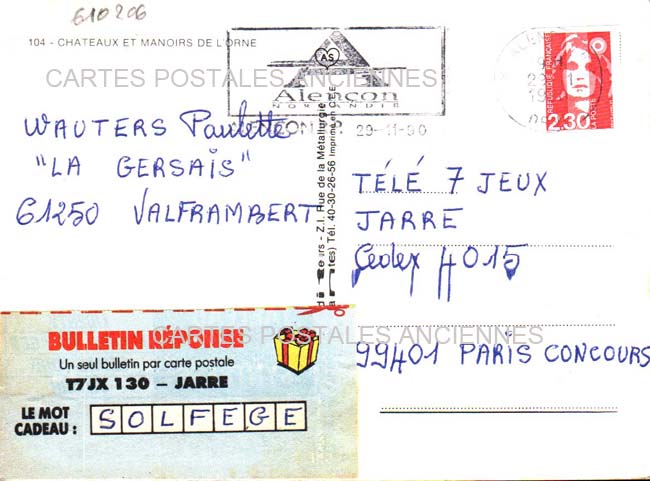 610206
104 - CHATEAUX ET MANOIRS DE L'ORNE
CARTES POSTALES ANCIENNES
AS
Alençon
NORMANDIE
29-11-90
REPUBLIQUE FRANÇAISE
2,30
LA POSTE
WAUTERS Paulette
"LA GERSAIS"
61250 VALFRAMBERT
Z.I. Rue de la Métallurgie
Tél. 40-30-26-56 Imprimé en CEE
TÉLÉ 7 JEUX
JARRE
Cedex 4015
99401 PARIS CONCOURS
BULLETIN RÉPONSE
CARTES POSTALES ANCIENNES
Un seul bulletin par carte postale
T7JX 130 – JARRE
LE MOT
CADEAU : SOLFEGE